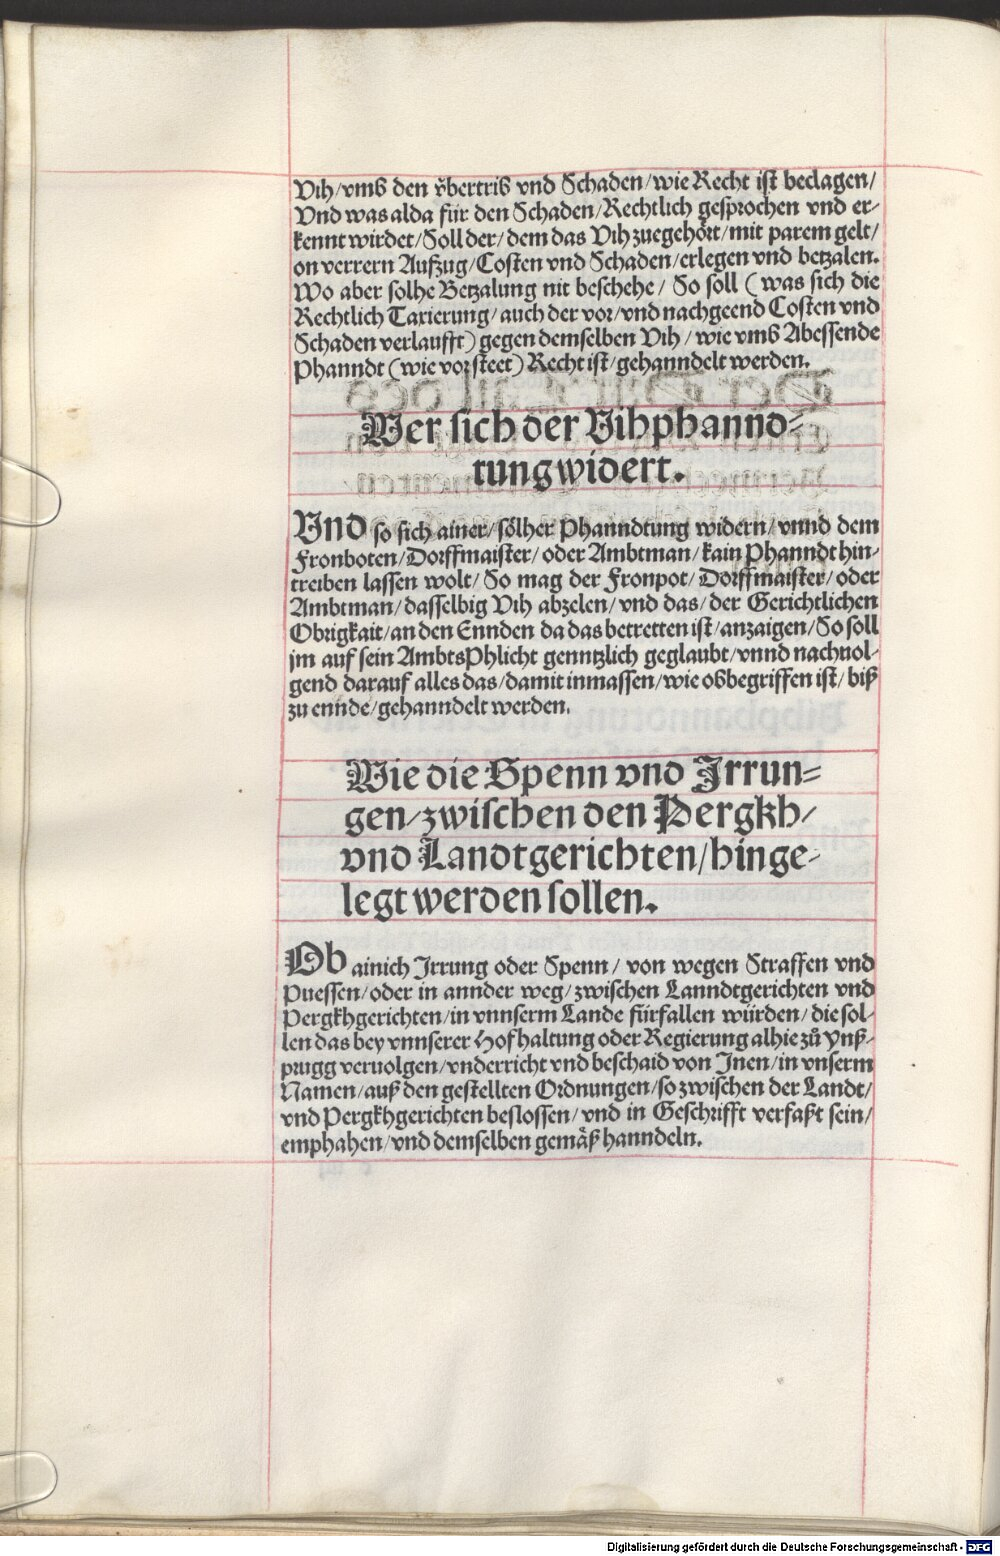 Vih/vmb den v̈bertrib vnd Schaden/wie Recht ist beclagen/
Vnd was alda für den Schaden/Rechtlich gesprochen vnd er-
kennt wirdet/Soll der/dem das Vih zuegehört/mit parem gelt/
on verrern Aufzug/Costen vnd Schaden/erlegen vnd betzalen.
Wo aber solhe Betzalung nit beschehe/ So soll (was sich die
Rechtlich Taxierung/auch der vor/vnd nachgeend Costen vnd
Schaden verlaufft) gegen demselben Vih/ wie vmb Abessende
Phanndt (wie vorsteet) Recht ist/gehanndelt werden.
Wer sich der Vihphannd-
tung widert.
Vnd so sich ainer/sölher Phanndtung widern/vnnd dem
Fronboten/Dorffmaister/oder Ambtman/kain Phanndt hin-
treiben lassen wolt/So mag der Fronpot/Dorffmaister/oder
Ambtman/dasselbig Vih abzelen/vnd das/der Gerichtlichen
Obrigkait/an den Ennden da das betretten ist/anzaigen/So soll
jm auf sein AmbtsPhlicht genntzlich geglaubt/vnnd nachuol-
gend darauf alles das/damit inmassen/wie obbegriffen ist/biß
zu ennde/gehanndelt werden.
Wie die Spenn vnd Irrun-
gen/zwischen den Pergkh/
vnd Landtgerichten/hinge-
legt werden sollen.
Ob ainich Irrung oder Spenn/ von wegen Straffen vnd
Puessen/oder in annder weg/zwischen Lanndtgerichten vnd
Pergkhgerichten/in vnnserm Lande fürfallen würden/die sol-
len das bey vnnserer Hofhaltung oder Regierung alhie zů Ynß-
prugg veruolgen/vnderricht vnd beschaid von Inen/in vnserm
Namen/auß den gestellten Ordnungen/so zwischen der Landt/
vnd Pergkhgerichten beslossen/vnd in Geschrifft verfaßt sein/
emphahen/vnd demselben gemäß hanndeln.
Digitalisierung gefördert durch die Deutsche Forschungsgemeinschaft - DFG